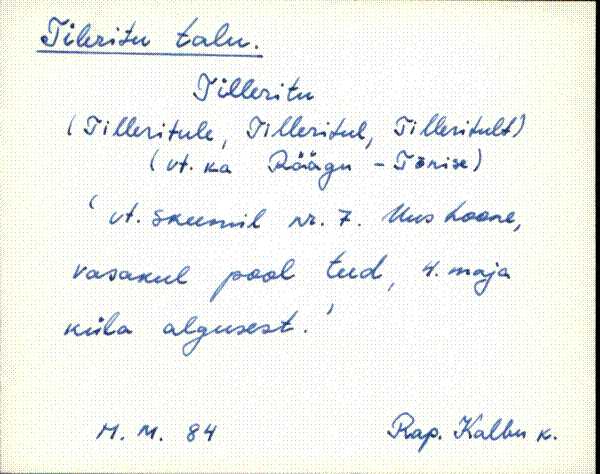 Tileritu talu.
Tilleritu
(Tilleritule, Tilleritul, Tilleritult)
(vt. ka Räägu - Tõnise)
' vt. skeemil nr. 7. Uus hoone,
vasakul pool teed, 4. maja
küla algusest.'
M. M. 84 Rap. Kalbu k.